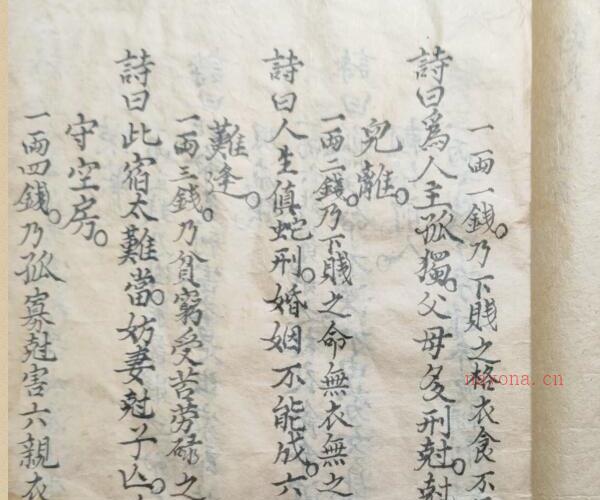 一両一錢。乃下賤之格衣食不
詩曰為人主孤獨。父母多刑尅。尅
兒離。
一両二錢。乃下賤之命無衣無之
詩曰人生值蛇刑。婚姻不能成。六
難逢。
一両三錢。乃貧窮受苦劳碌之
詩曰此宿太難當。妨妻尅子亡。
守空房。
一両四錢。乃孤寡尅害六親衣
nayona.cn